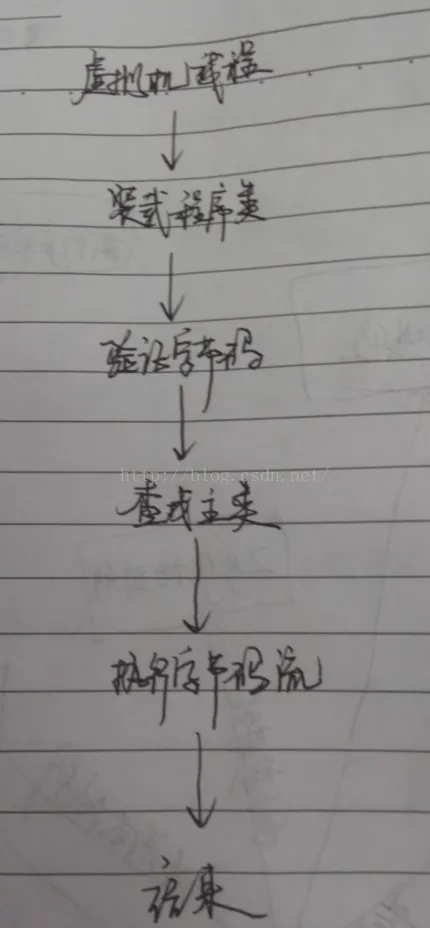 虚拟机线程
↓
装载程序类
↓
验证字节码
↓
http://blog.csdn.net/
查找主类
↓
执行字节码流
↓
结束